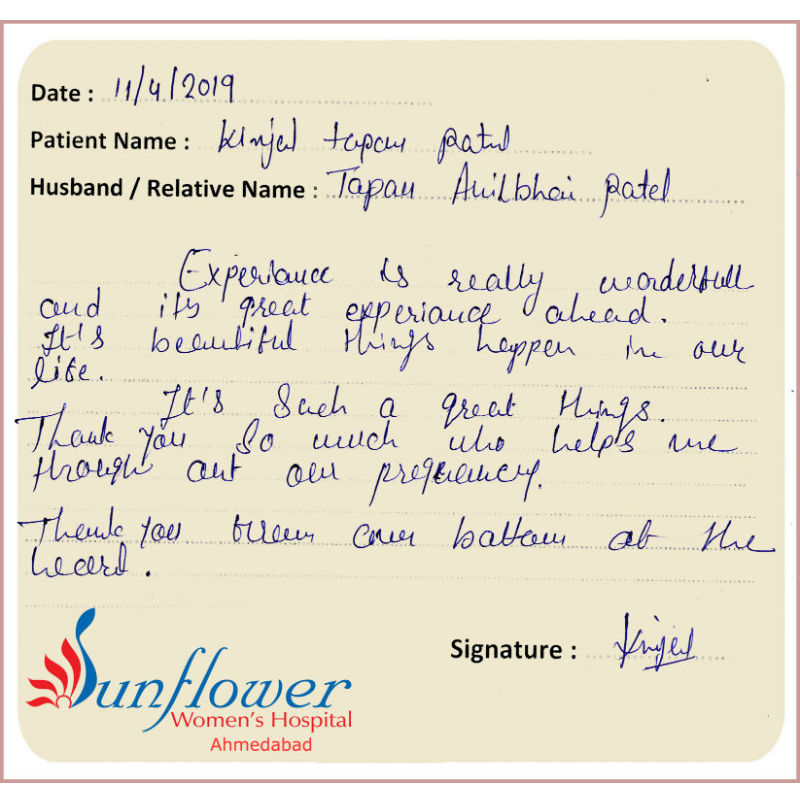 Date : 11/4/2019
Patient Name : Kinjal tapan patel
Husband / Relative Name : Tapan Anilbhai patel
Experiance is really wonderfull
and its great experiance ahead.
It's beautiful things happen in our
life.
It's Such a great things.
Thank you So much who helps me
through out our pregnancy.
Thank you from our bottom of the
heart.
Signature : Kinjal
Sunflower
Women's Hospital
Ahmedabad